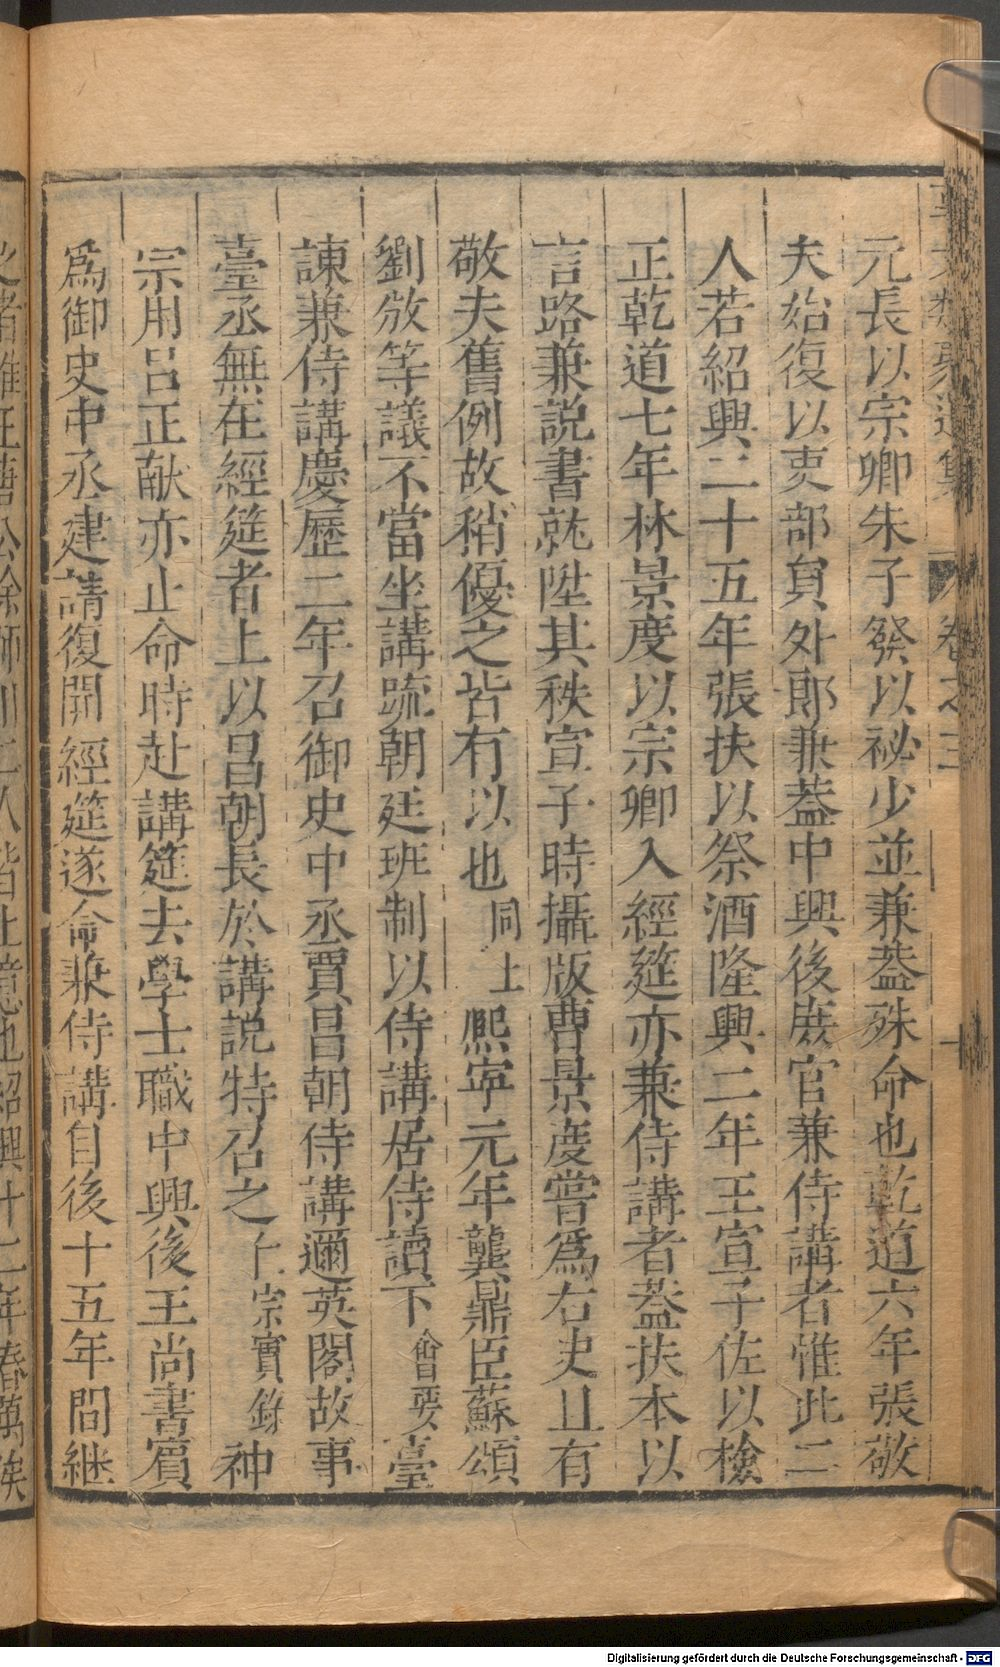 元長以宗卿朱子發以祕少並兼葢殊命也乾道六年張敬
夫始復以吏部貟外郎兼葢中興後庶官兼侍講者惟此二
人若紹興二十五年張扶以祭酒隆興二年王宣子佐以檢
正乾道七年林景度以宗卿入經筵亦兼侍講者葢扶本以
言路兼説書就陞其秩宣子時攝版曹景度嘗爲右史且有
敬夫舊例故稍優之皆有以也 同上 熈寧元年龔鼎臣蘇頌
劉攽等議不當坐講䟽朝廷班制以侍講居侍讀下 會要 臺
諫兼侍講慶歷二年召御史中丞賈昌朝侍講邇英閣故事
臺丞無在經筵者上以昌朝長於講説特召之 仁宗實錄 神
宗用吕正献亦止命時赴講筵去學士職中興後王尚書賓
爲御史中丞建請復開經筵遂命兼侍講自後十五年間継
卷之三
Digitalisierung gefördert durch die Deutsche Forschungsgemeinschaft - DFG